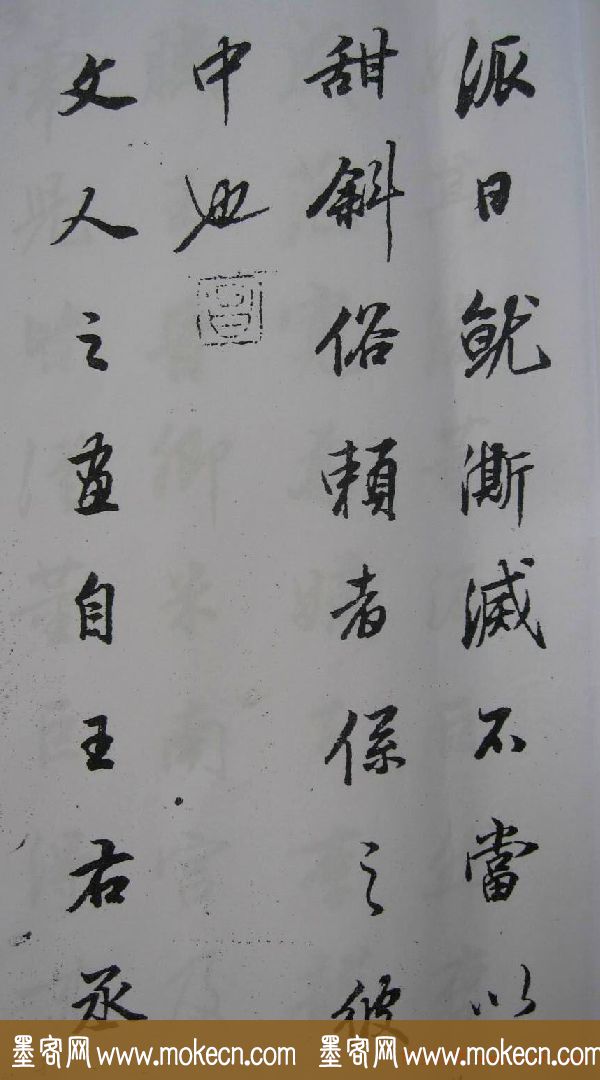 派日就澌滅不當以
甜斜俗賴者係之彼
中也
文人之畫自王右丞
墨客网 www.mokecn.com 墨客网 www.mokecn.com